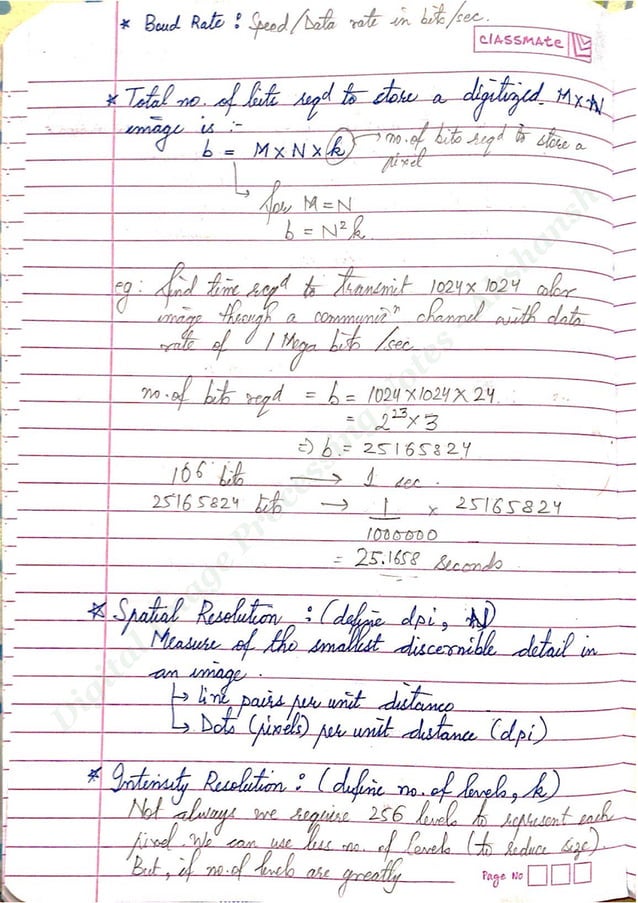 * Baud Rate : Speed/Data rate in bits/sec.
classmate
* Total no. of bits reqd to store a digitized M×N
image is :-
b = M × N × k → no. of bits reqd to store a
pixel
↳ for M=N
b = N²k
eg: find time reqd to transmit 1024 × 1024 color
image through a communicⁿ channel with data
rate of 1 Mega bits /sec
no. of bits reqd = b = 1024 × 1024 × 24
= 2²³ × 3
⇒ b = 25165824
10⁶ bits → 1 sec.
25165824 bits → 1 × 25165824
1000000
= 25.1658 seconds
* Spatial Resolution : (define dpi, N)
Measure of the smallest discernible detail in
an image.
↳ Line pairs per unit distance
↳ Dots (pixels) per unit distance (dpi)
* Intensity Resolution : (define no. of levels, k)
Not always we require 256 levels to represent each
pixel. We can use less no. of levels (to reduce size).
But, if no. of levels are greatly
Page No
Digital Image Processing Notes